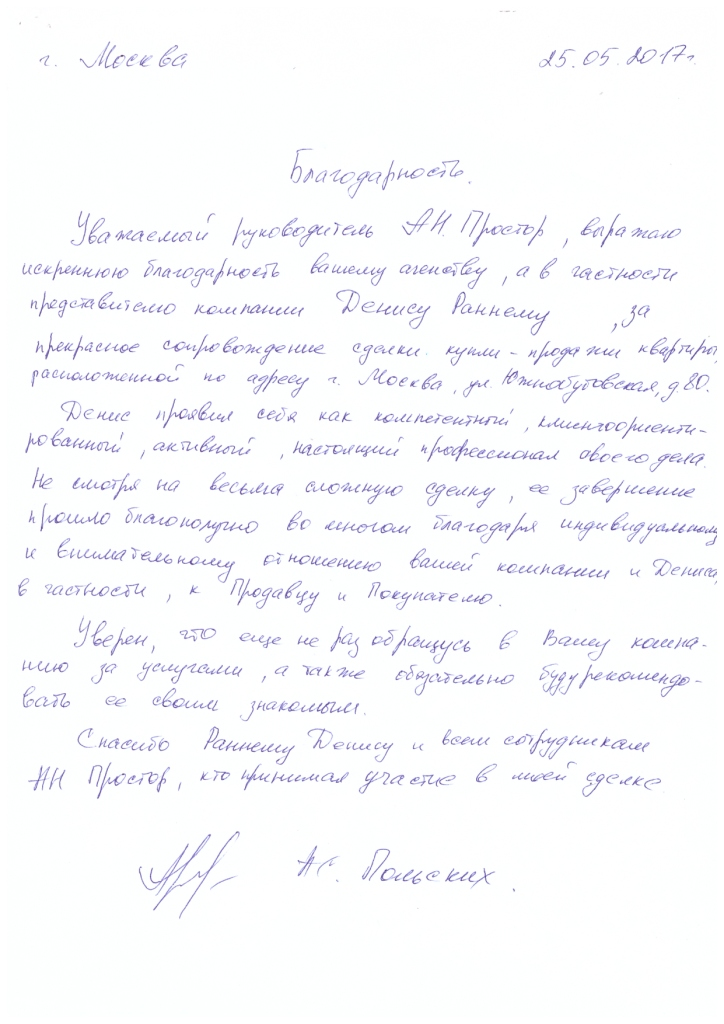 г. Москва 25.05.2017г.
Благодарность.
Уважаемый руководитель АН. Простор, выражаю
искреннюю благодарность вашему агенству, а в частности
представителю компании Денису Раннему, за
прекрасное сопровождение сделки купли-продажи квартиры,
расположенной по адресу г. Москва, ул. Южнобутовская, д.80.
Денис проявил себя как компетентный, клиентоориенти-
рованный, активный, настоящий профессионал своего дела.
Не смотря на весьма сложную сделку, ее завершение
прошло благополучно во многом благодаря индивидуальному
и внимательному отношению вашей компании и Дениса,
в частности, к Продавцу и Покупателю.
Уверен, что еще не раз обращусь в Вашу компа-
нию за услугами, а также обязательно буду рекомендо-
вать ее своим знакомым.
Спасибо Раннему Денису и всем сотрудникам
АН Простор, кто принимал участие в моей сделке
А.С. Польских.